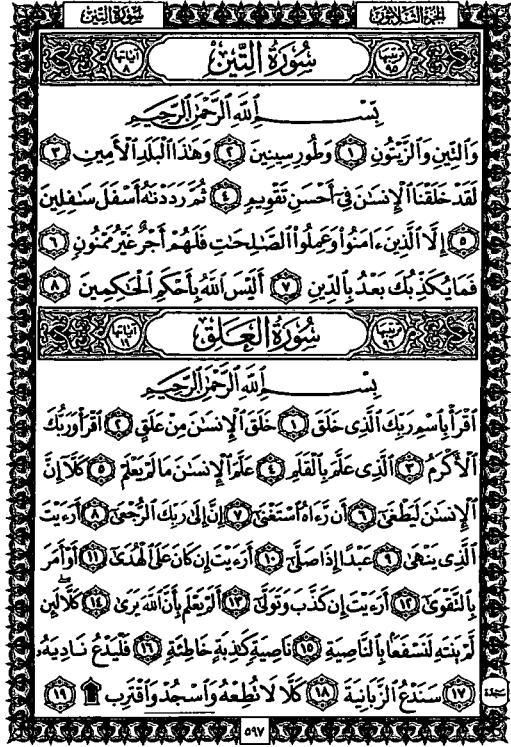 سُورَةُ التِّينِ الجُزْءُ الثَّلَاثُونَ
آيَاتُهَا ٨ سُورَةُ التِّينِ تَرْتِيبُهَا ٩٥
بِسْمِ ٱللَّهِ ٱلرَّحْمَٰنِ ٱلرَّحِيمِ
وَٱلتِّينِ وَٱلزَّيْتُونِ ١ وَطُورِ سِينِينَ ٢ وَهَٰذَا ٱلْبَلَدِ ٱلْأَمِينِ ٣
لَقَدْ خَلَقْنَا ٱلْإِنسَٰنَ فِىٓ أَحْسَنِ تَقْوِيمٍ ٤ ثُمَّ رَدَدْنَٰهُ أَسْفَلَ سَٰفِلِينَ
٥ إِلَّا ٱلَّذِينَ ءَامَنُوا۟ وَعَمِلُوا۟ ٱلصَّٰلِحَٰتِ فَلَهُمْ أَجْرٌ غَيْرُ مَمْنُونٍ ٦
فَمَا يُكَذِّبُكَ بَعْدُ بِٱلدِّينِ ٧ أَلَيْسَ ٱللَّهُ بِأَحْكَمِ ٱلْحَٰكِمِينَ ٨
آيَاتُهَا ١٩ سُورَةُ العَلَقِ تَرْتِيبُهَا ٩٦
بِسْمِ ٱللَّهِ ٱلرَّحْمَٰنِ ٱلرَّحِيمِ
ٱقْرَأْ بِٱسْمِ رَبِّكَ ٱلَّذِى خَلَقَ ١ خَلَقَ ٱلْإِنسَٰنَ مِنْ عَلَقٍ ٢ ٱقْرَأْ وَرَبُّكَ
ٱلْأَكْرَمُ ٣ ٱلَّذِى عَلَّمَ بِٱلْقَلَمِ ٤ عَلَّمَ ٱلْإِنسَٰنَ مَا لَمْ يَعْلَمْ ٥ كَلَّآ إِنَّ
ٱلْإِنسَٰنَ لَيَطْغَىٰٓ ٦ أَن رَّءَاهُ ٱسْتَغْنَىٰٓ ٧ إِنَّ إِلَىٰ رَبِّكَ ٱلرُّجْعَىٰٓ ٨ أَرَءَيْتَ
ٱلَّذِى يَنْهَىٰ ٩ عَبْدًا إِذَا صَلَّىٰٓ ١٠ أَرَءَيْتَ إِن كَانَ عَلَى ٱلْهُدَىٰٓ ١١ أَوْ أَمَرَ
بِٱلتَّقْوَىٰٓ ١٢ أَرَءَيْتَ إِن كَذَّبَ وَتَوَلَّىٰٓ ١٣ أَلَمْ يَعْلَم بِأَنَّ ٱللَّهَ يَرَىٰ ١٤ كَلَّا لَئِن
لَّمْ يَنتَهِ لَنَسْفَعًۢا بِٱلنَّاصِيَةِ ١٥ نَاصِيَةٍ كَٰذِبَةٍ خَاطِئَةٍ ١٦ فَلْيَدْعُ نَادِيَهُۥ
١٧ سَنَدْعُ ٱلزَّبَانِيَةَ ١٨ كَلَّا لَا تُطِعْهُ وَٱسْجُدْ وَٱقْتَرِب ۩ ١٩
سجدة
٥٩٧